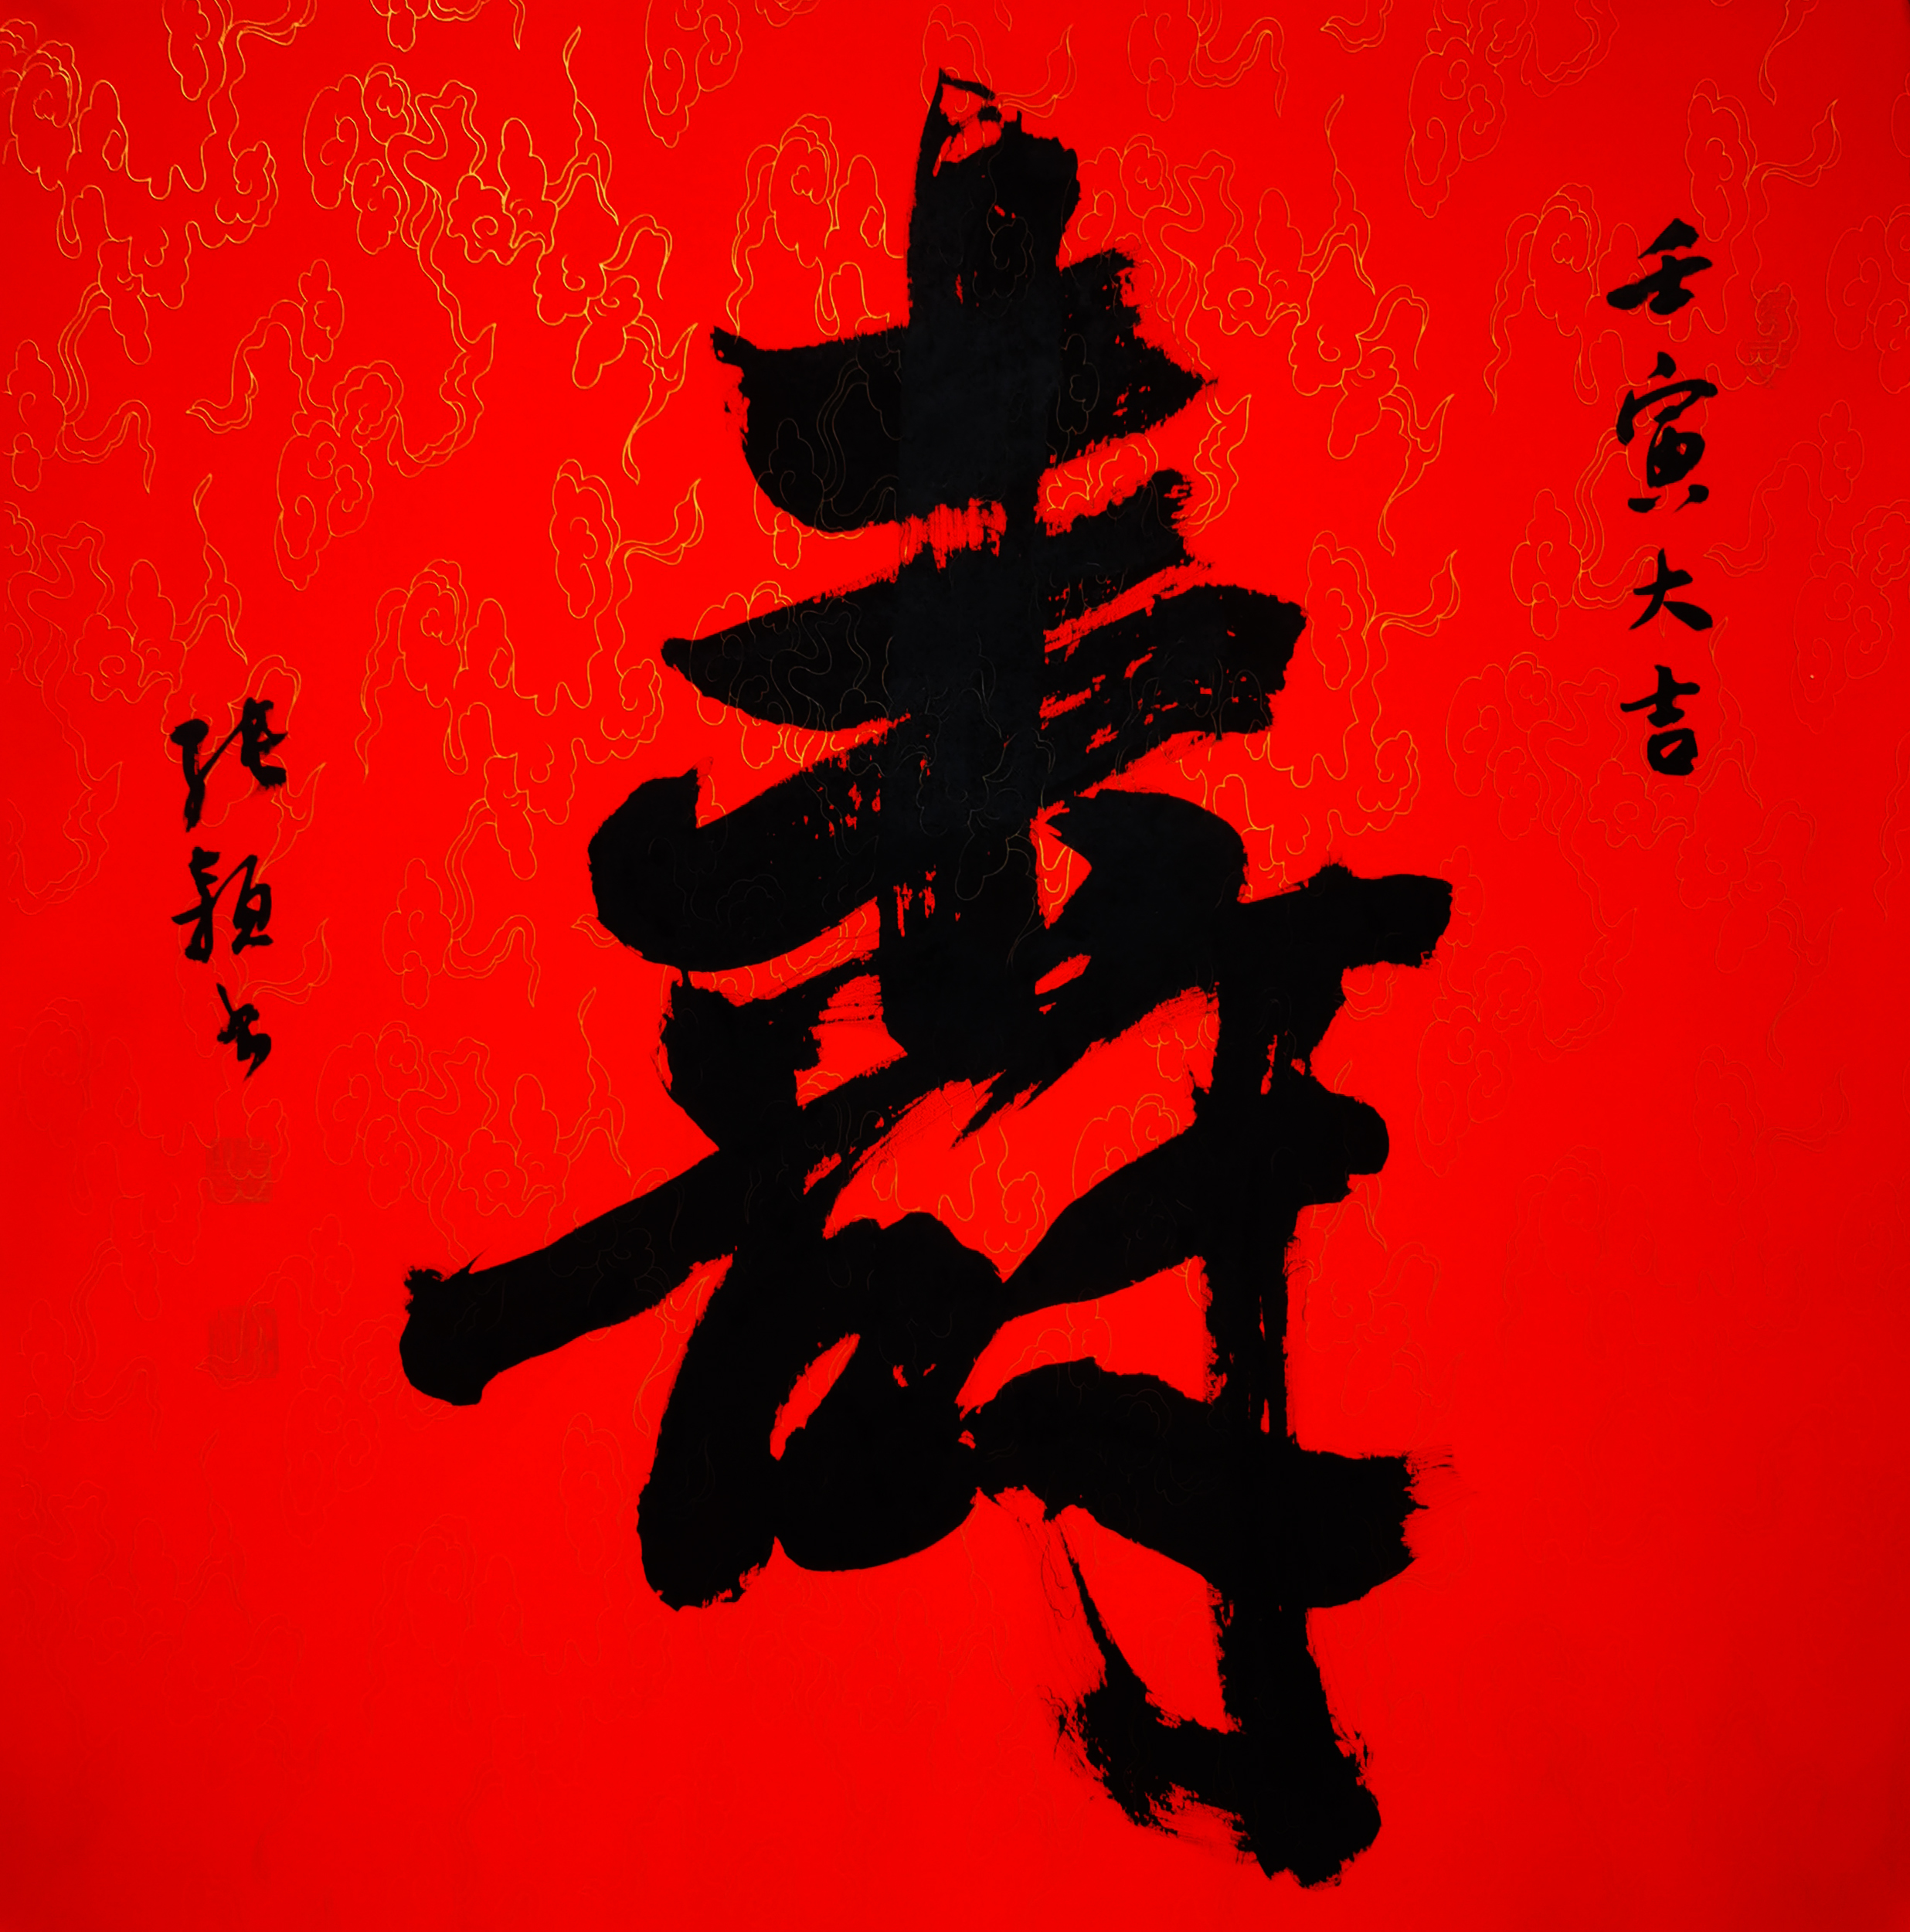 壬寅大吉
壽
張穎书